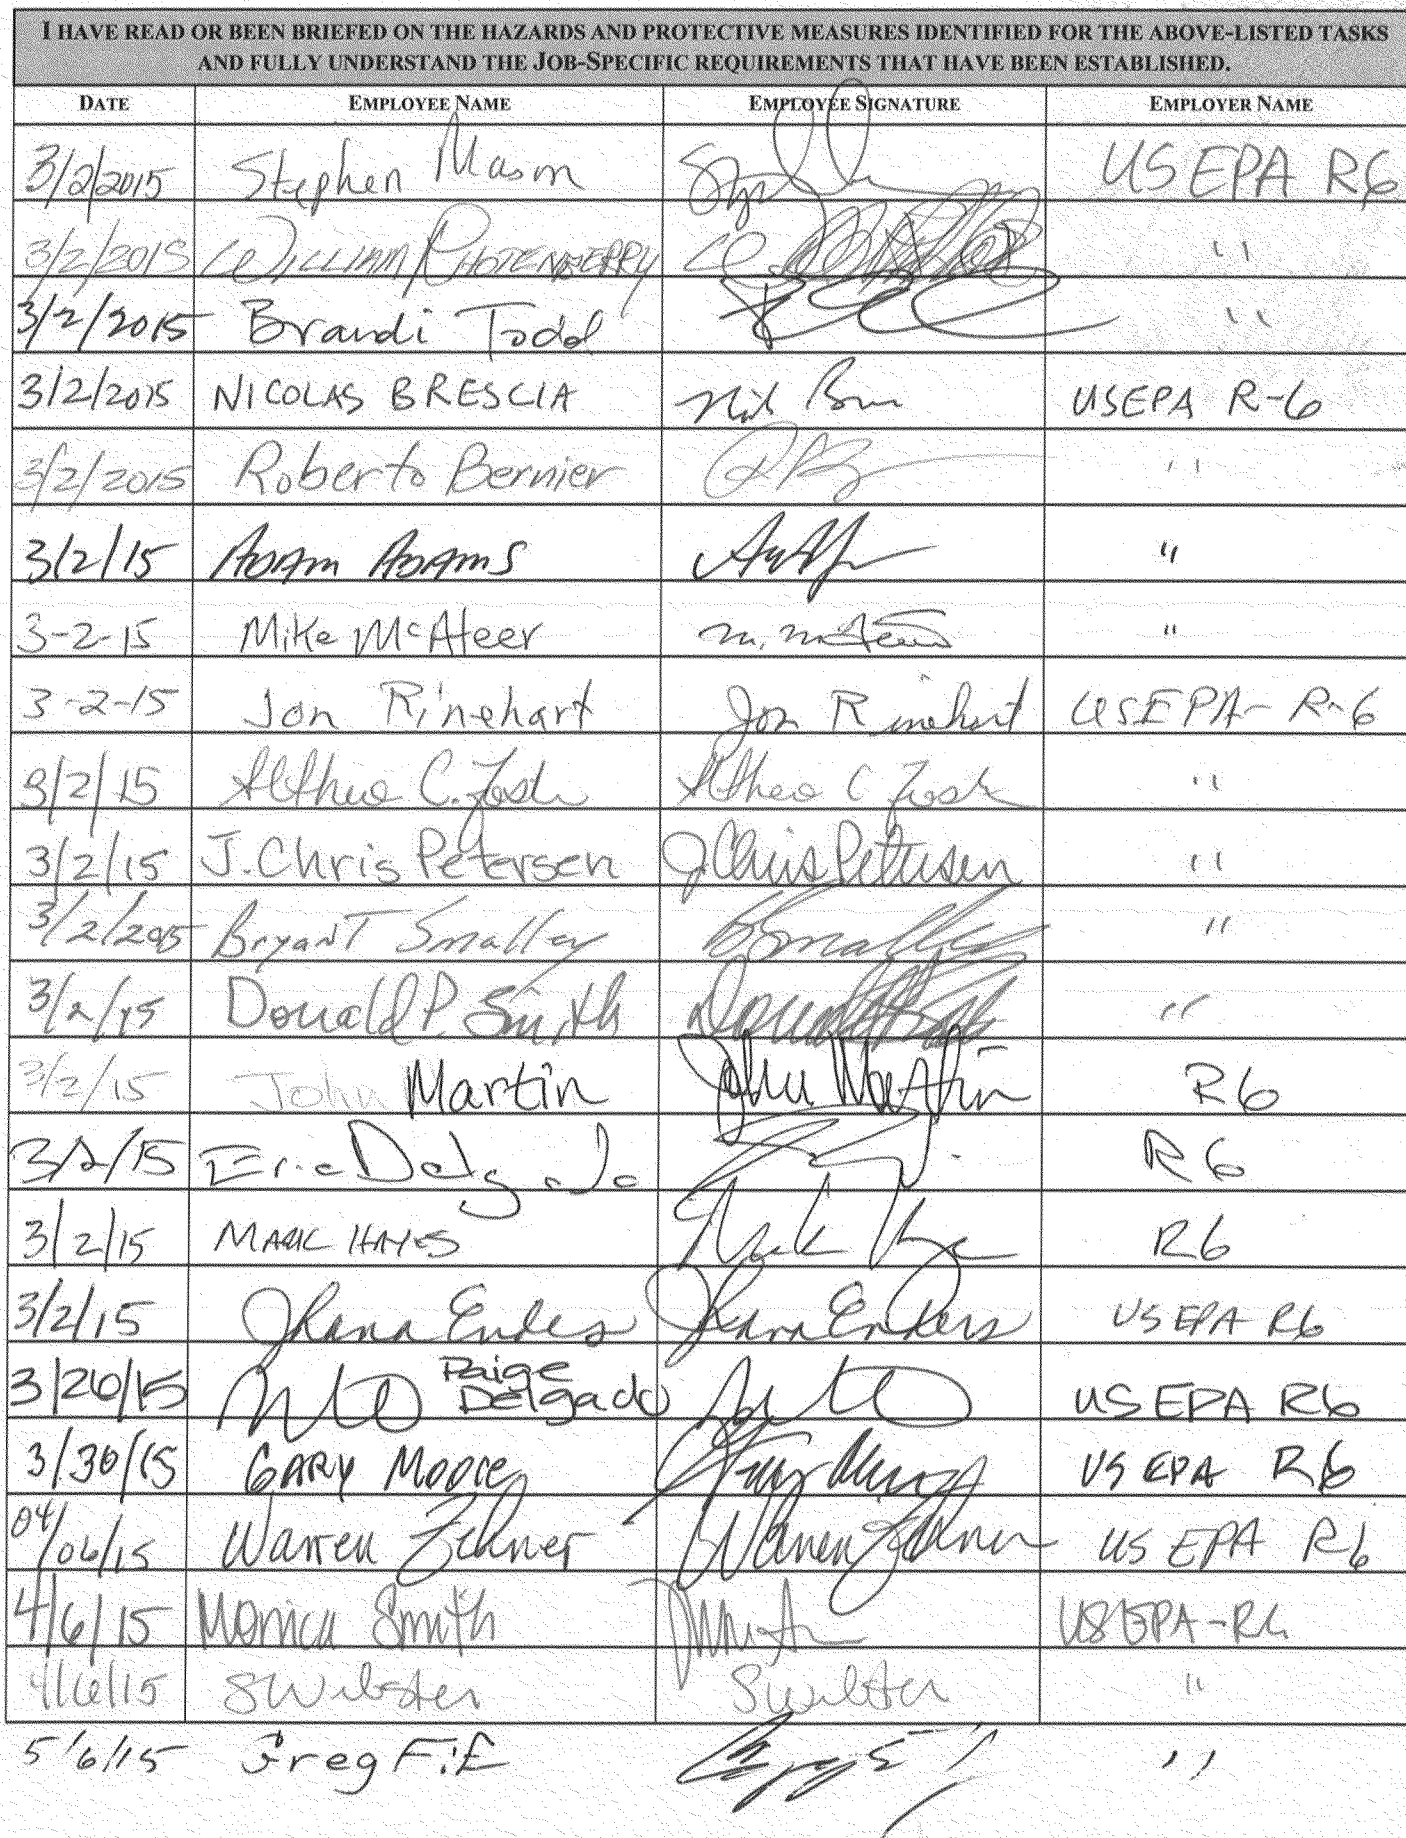 I HAVE READ OR BEEN BRIEFED ON THE HAZARDS AND PROTECTIVE MEASURES IDENTIFIED FOR THE ABOVE-LISTED TASKS
AND FULLY UNDERSTAND THE JOB-SPECIFIC REQUIREMENTS THAT HAVE BEEN ESTABLISHED.
DATE EMPLOYEE NAME EMPLOYEE SIGNATURE EMPLOYER NAME
3/2/2015 Stephen Mason US EPA R6
3/2/2015 WILLIAM RHOTENBERRY "
3/2/2015 Brandi Todd "
3/2/2015 NICOLAS BRESCIA USEPA R-6
3/2/2015 Roberto Bernier "
3/2/15 ADAM ADAMS "
3-2-15 Mike McAteer M. McAteer "
3-2-15 Jon Rinehart Jon Rinehart USEPA-R-6
3/2/15 Althea C. Althea C "
3/2/15 J. Chris Petersen J Chris Petersen "
3/2/2015 Bryant Smalley B Smalley "
3/2/15 Donald P. Smith Donald "
3/2/15 John Martin John Martin R6
3/2/15 Eric Delgado R6
3/2/15 MARK HAYES R6
3/2/15 US EPA R6
3/26/15 Paige Delgado US EPA R6
3/30/15 GARY MOORE Gary Moore US EPA R6
04/06/15 Warren Zehner Warren Zehner US EPA R6
4/6/15 Monica Smith USEPA-R6
4/6/15 SWebster SWebster "
5/6/15 Greg Fife "